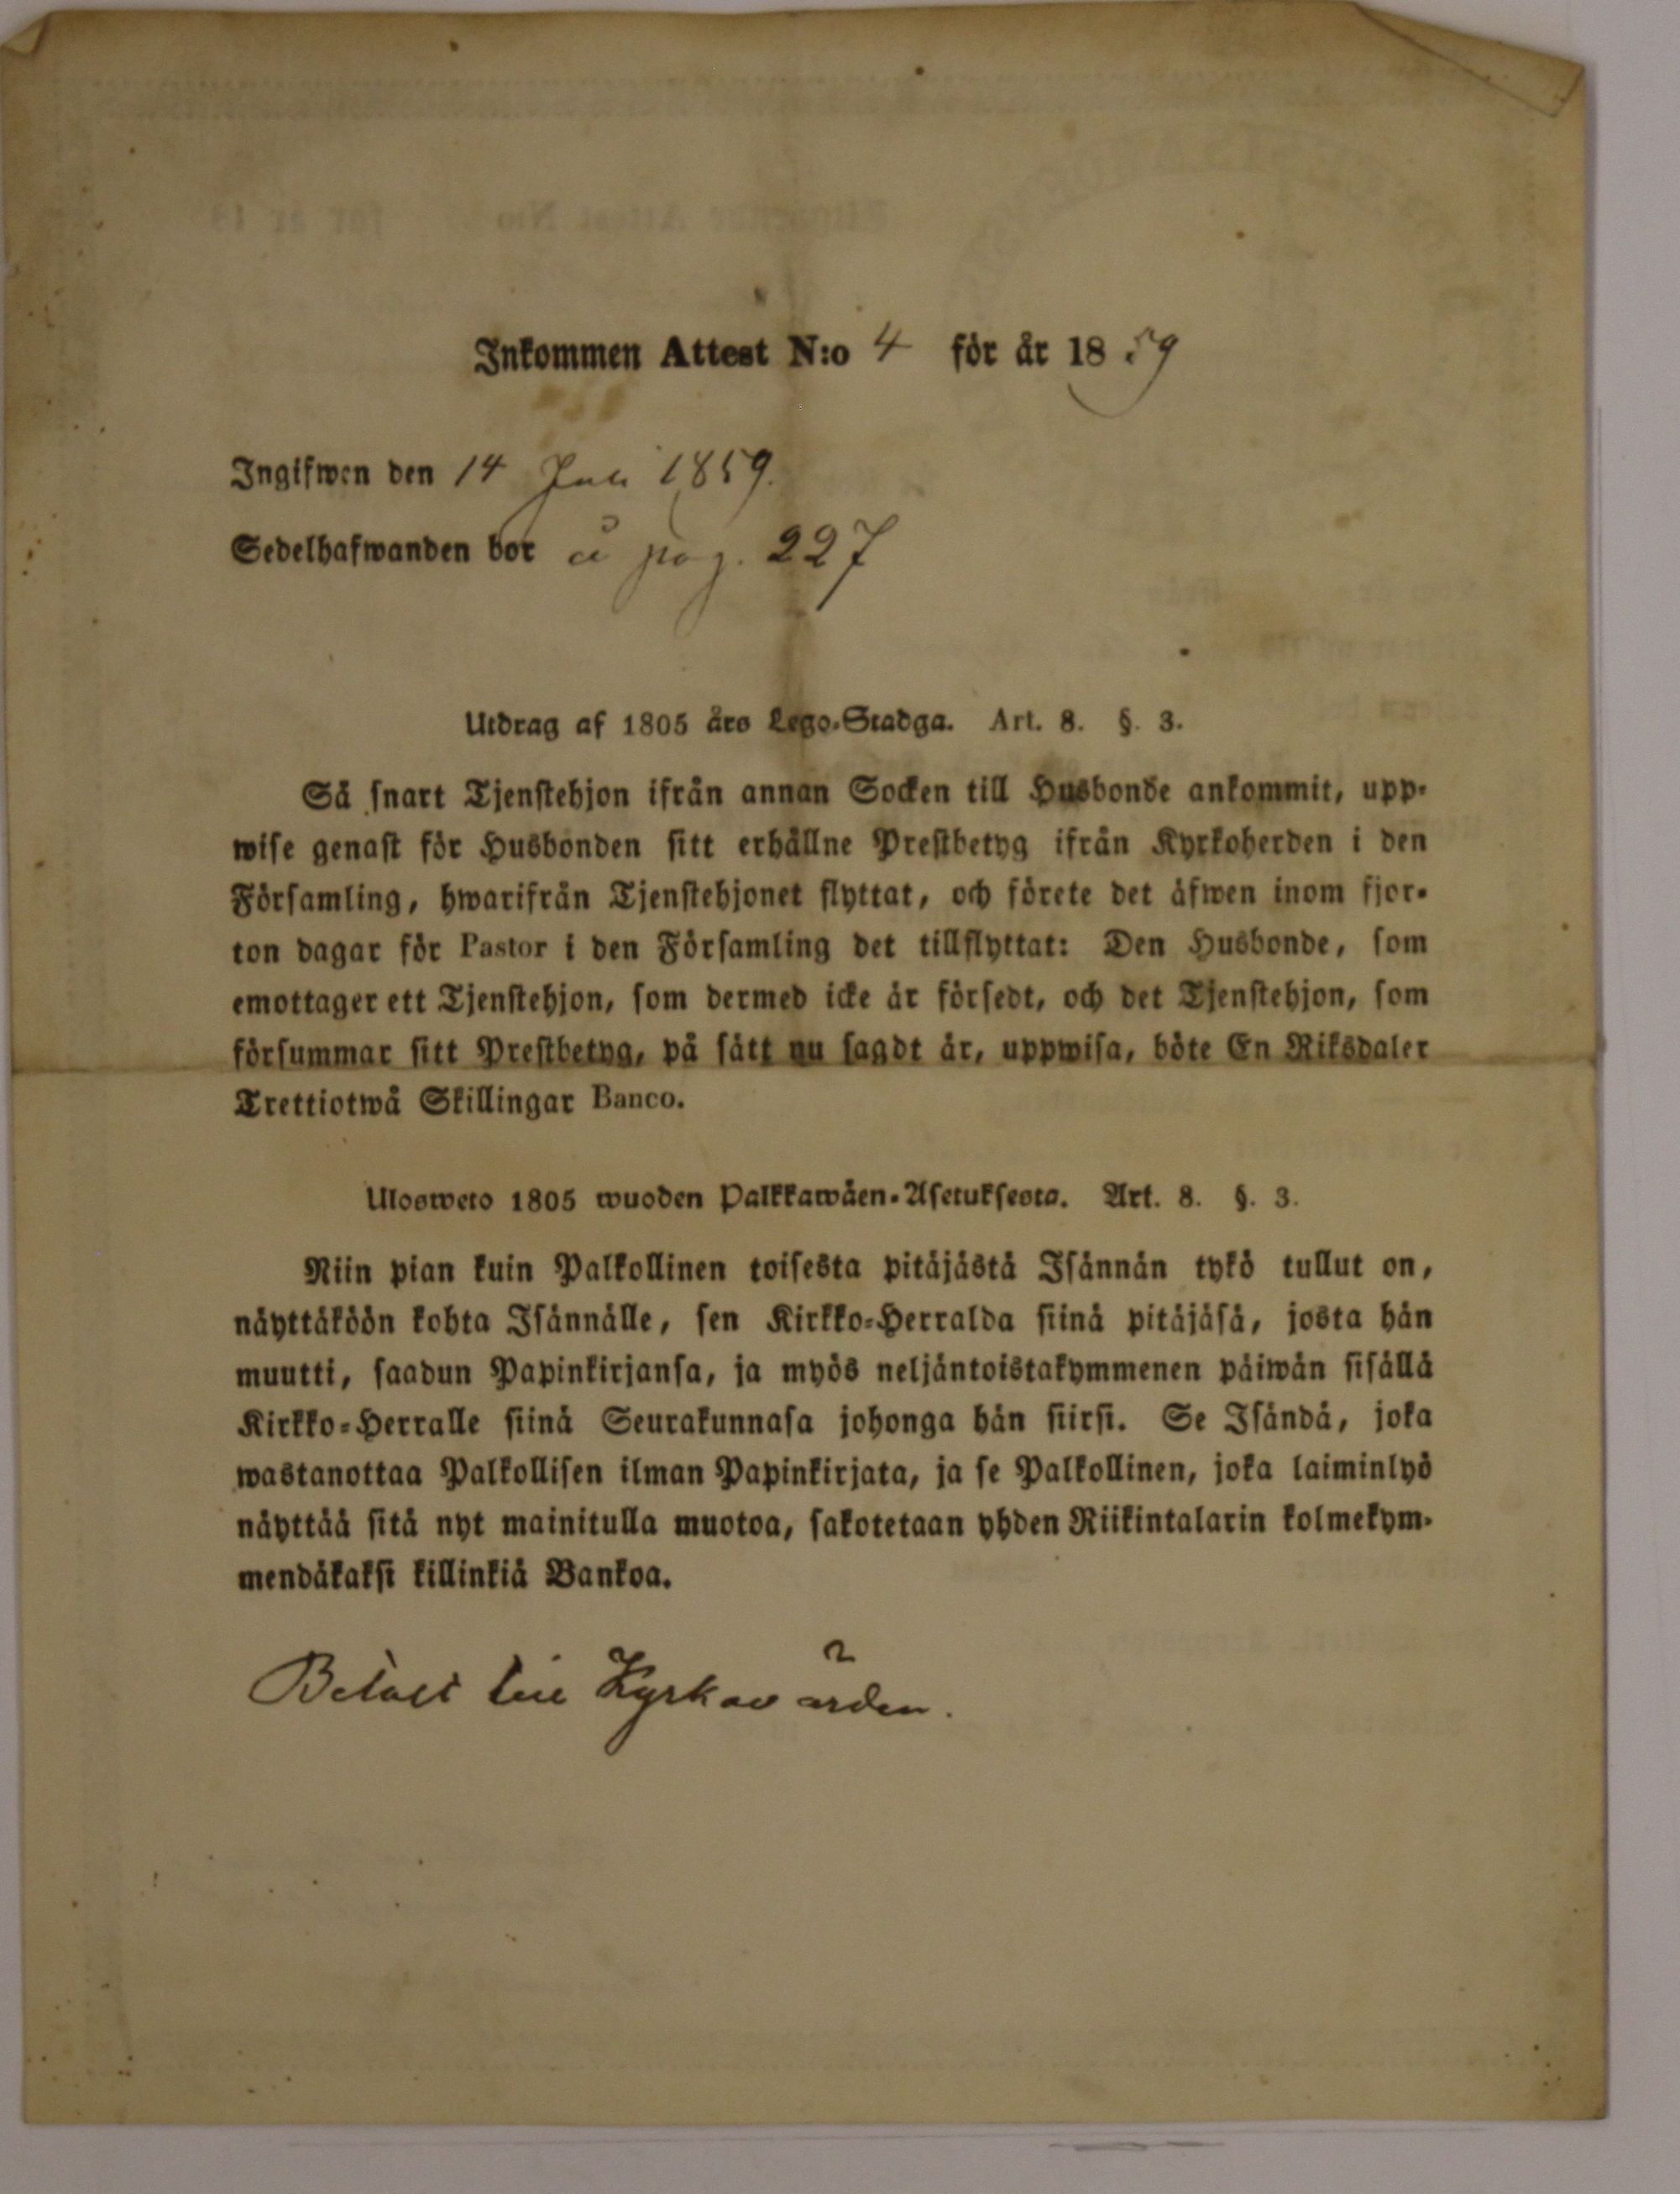 Inkommen Attest N:o 4 för år 1859
Ingifwen den 14 Juli 1859.
Sedelhafwanden bor å pag. 227
Utdrag af 1805 års Lego-Stadga. Art. 8. §. 3.
Så snart Tjenstehjon ifrån annan Socken till Husbonde ankommit, upp-
wise genast för Husbonden sitt erhållne Prestbetyg ifrån Kyrkoherden i den
Församling, hwarifrån Tjenstehjonet flyttat, och förete det äfwen inom fjor-
ton dagar för Pastor i den Församling det tillflyttat: Den Husbonde, som
emottager ett Tjenstehjon, som dermed icke är försedt, och det Tjenstehjon, som
försummar sitt Prestbetyg, på sätt nu sagdt är, uppwisa, böte En Riksdaler
Trettiotwå Skillingar Banco.
Ulosweto 1805 wuoden Palkkawäen-Asetuksesta. Art. 8. §. 3.
Niin pian kuin Palkollinen toisesta pitäjästä Isännän tykö tullut on,
näyttäköön kohta Isännälle, sen Kirkko-Herralda siinä pitäjäsä, josta hän
muutti, saadun Papinkirjansa, ja myös neljäntoistakymmenen päiwän sisällä
Kirkko-Herralle siinä Seurakunnasa johonga hän siirsi. Se Isändä, joka
wastanottaa Palkollisen ilman Papinkirjata, ja se Palkollinen, joka laiminlyö
näyttää sitä nyt mainitulla muotoa, sakotetaan yhden Riikintalarin kolmekym-
mendäkaksi killinkiä Bankoa.
Betalt till Kyrkovärden.